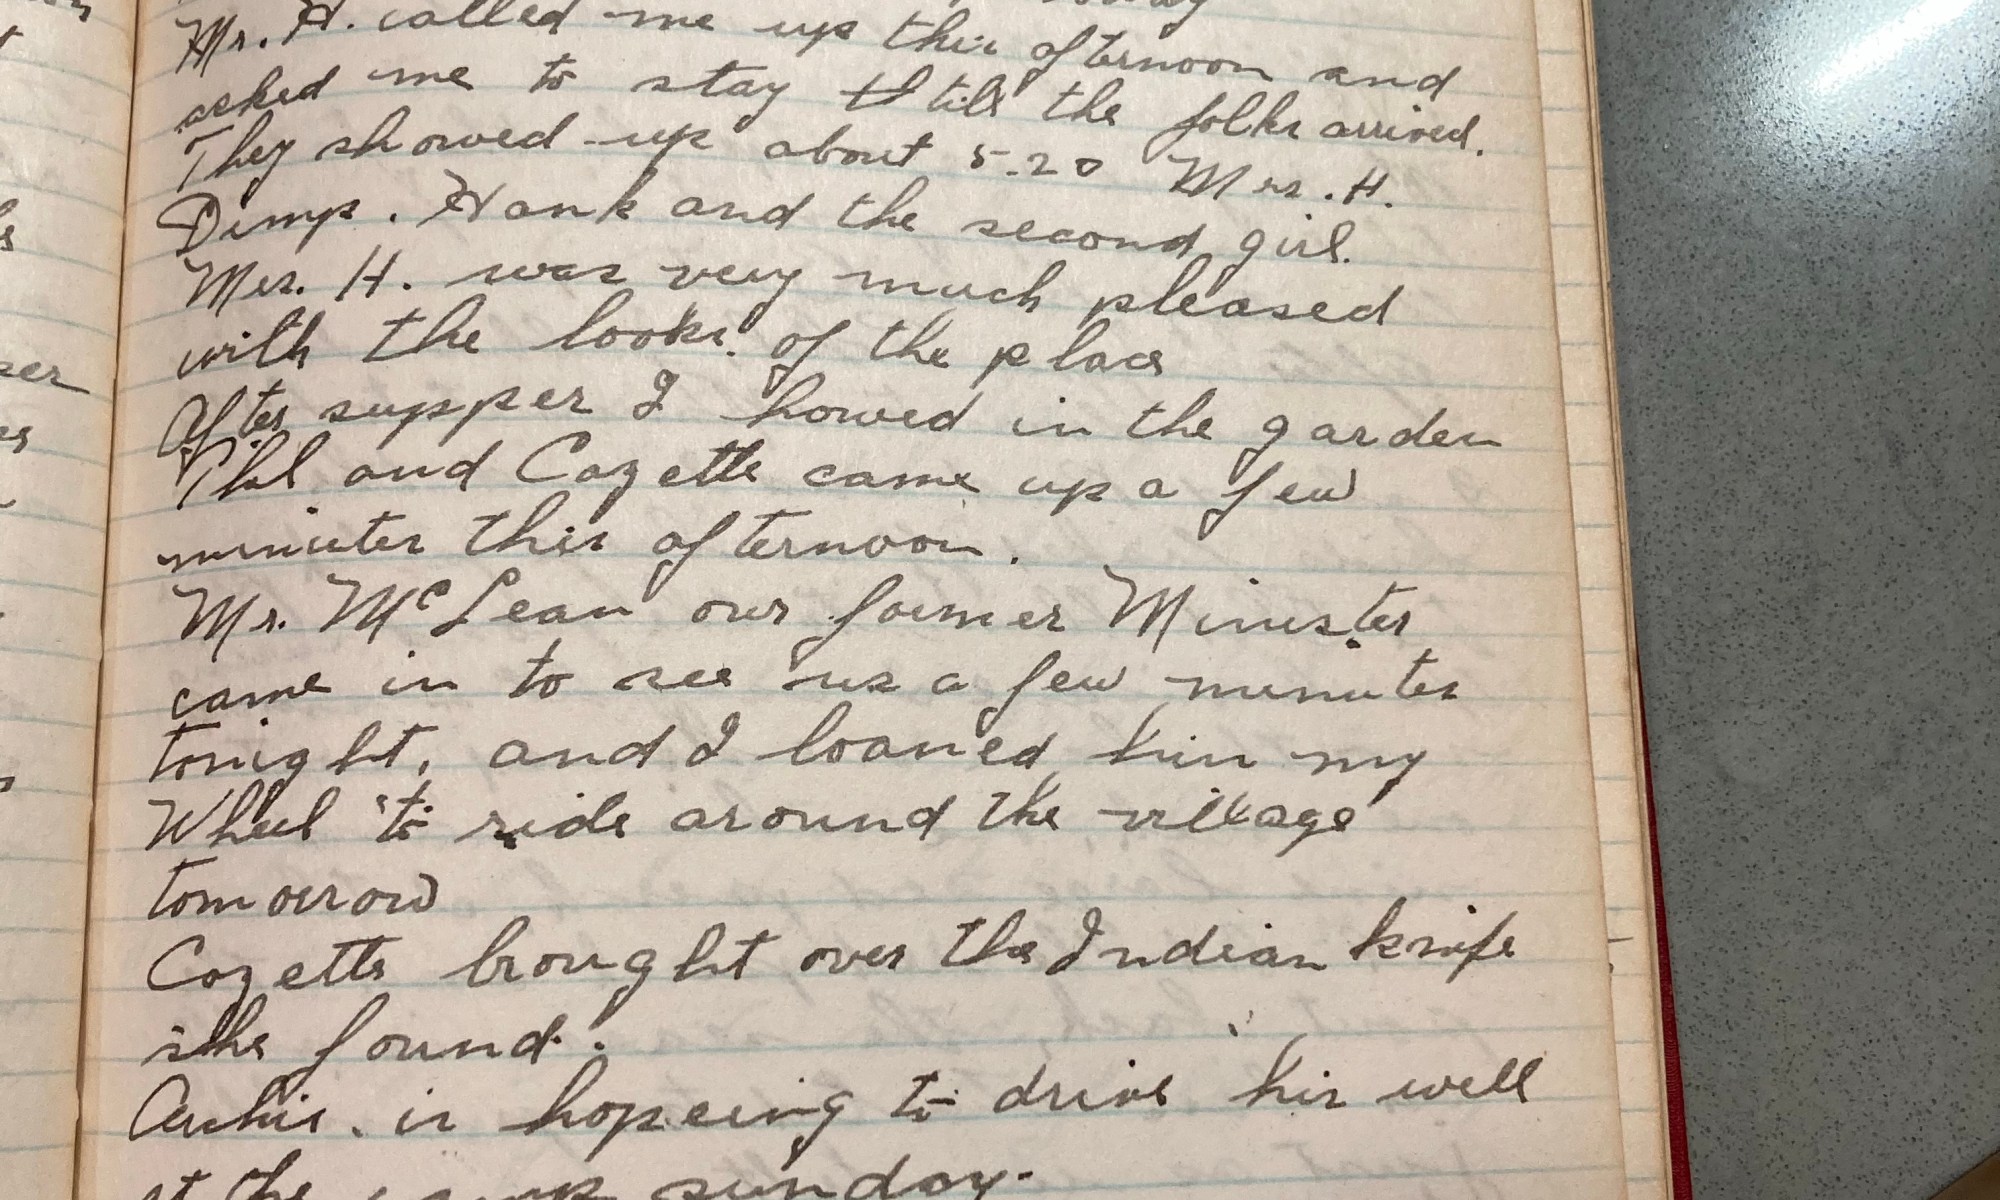 Mr. H. called me up this afternoon and
asked me to stay till the folks arrived.
They showed up about 5-20 Mrs. H.
Dimp. Hank and the second girl.
Mrs. H. was very much pleased
with the looks of the place
After supper I howed in the garden
Phil and Cozette came up a few
minutes this afternoon.
Mr. McLean our former Minister
came in to see us a few minutes
tonight, and I loaned him my
Wheel to ride around the village
tomorrow
Cozette brought over the Indian knife
she found.
Archie. is hopeing to drive his well
at the camp sunday.